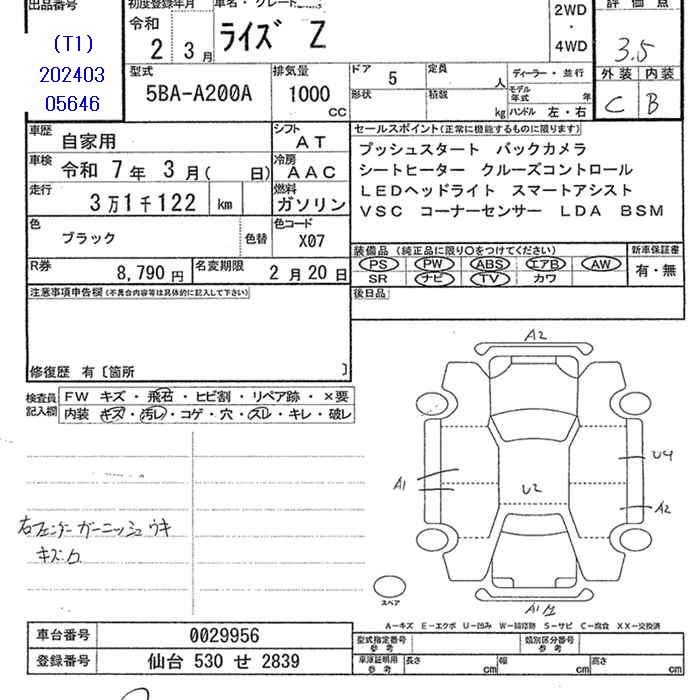 出品番号
(T1)
202403
05646
初度登録年月
令和
2 3月
車名・グレード
ライズ Z
2WD
・
4WD
評価点
3.5
外装 内装
C B
型式
5BA-A200A
排気量
1000
CC
ドア 5
形状
定員 人
積載 kg
ディーラー・並行
モデル年式 年
ハンドル 左・右
車歴 自家用
シフト AT
車検 令和 7年 3月( 日)
冷房 AAC
走行 3万1千122 km
燃料 ガソリン
色 ブラック 色替
色コード X07
R券 8,790円
名変期限 2月20日
セールスポイント(正常に機能するものに限ります)
プッシュスタート バックカメラ
シートヒーター クルーズコントロール
LEDヘッドライト スマートアシスト
VSC コーナーセンサー LDA BSM
装備品 (純正品に限り○をつけてください)
新車保証書
PS PW ABS エアB AW
SR ナビ TV カワ
有・無
後日品
注意事項申告欄(不具合内容等は具体的に記入して下さい)
修復歴 有〔箇所 〕
検査員記入欄
FW キズ・飛石・ヒビ割・リペア跡・×要
内装 キズ・汚レ・コゲ・穴・スレ・キレ・破レ
右フェンダーガーニッシュウキ
キズ
A2
A1
U2
U4
A2
A1
スペア
A-キズ E-エクボ U-凹み W-補修跡 S-サビ C-腐食 XX-交換済
車台番号 0029956
登録番号 仙台 530 せ 2839
型式指定番号 参考
類別区分番号 参考
車庫証明用 参考
長さ cm
幅 cm
高さ cm